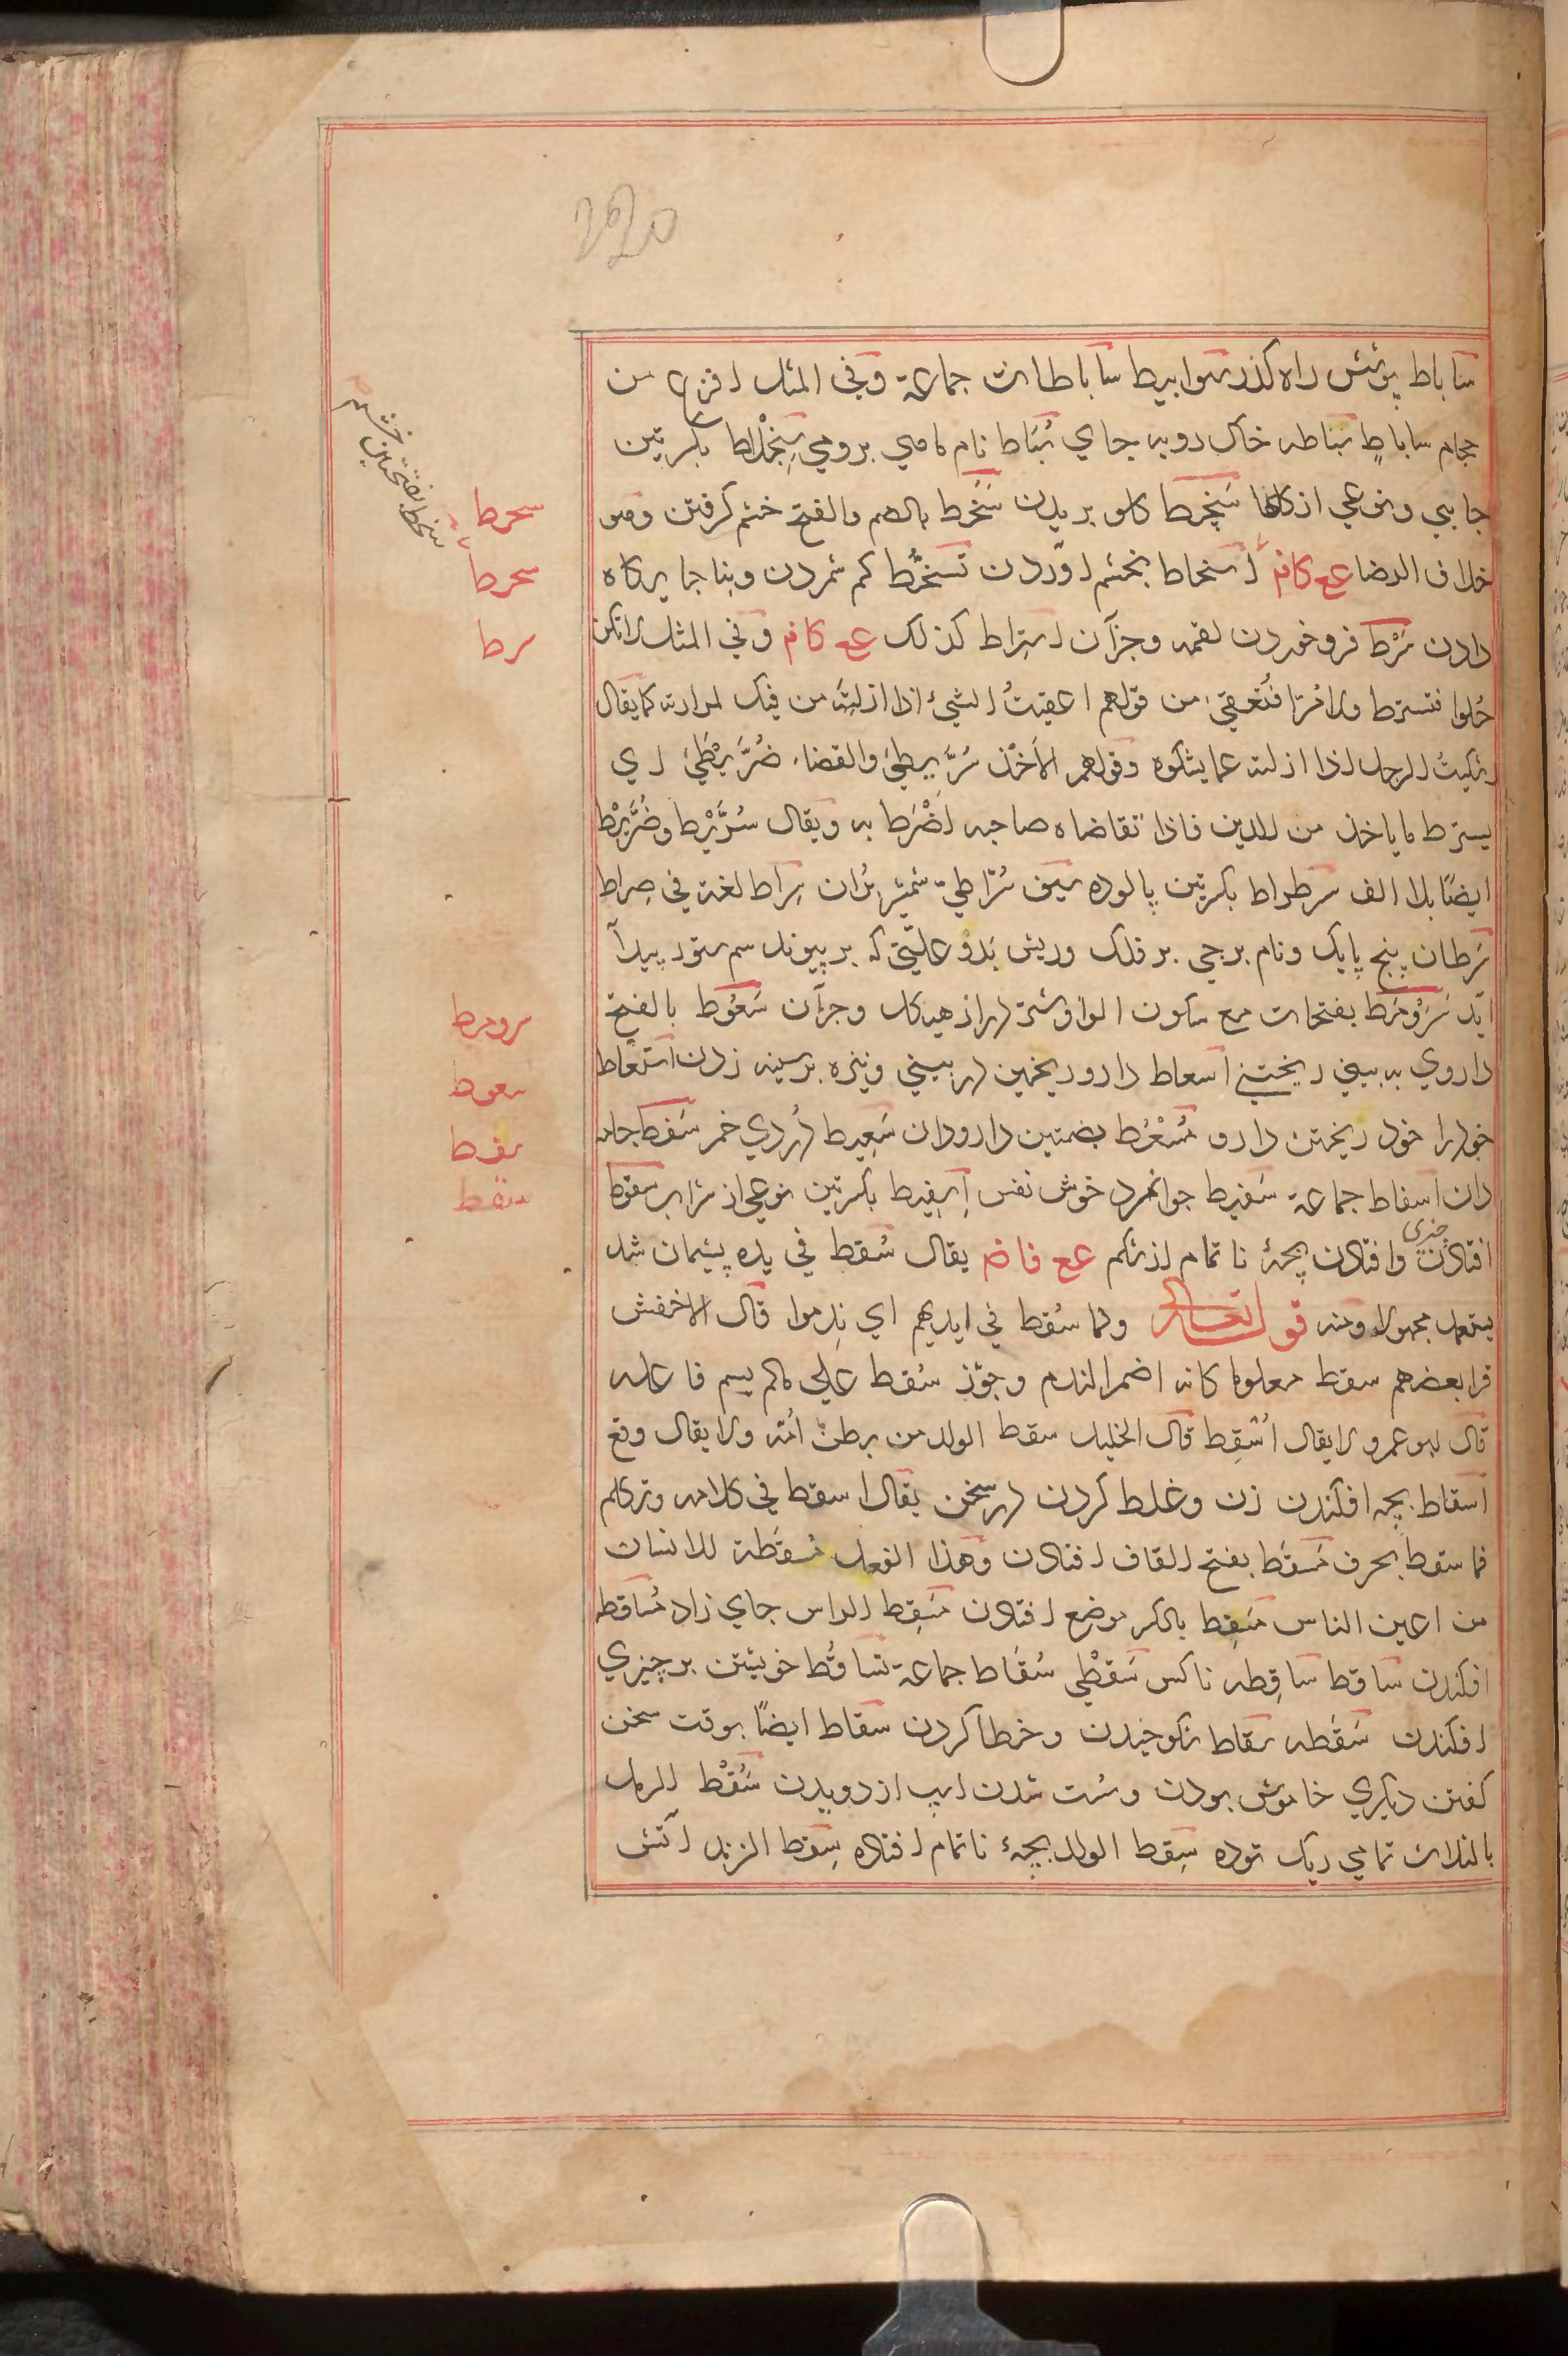 ساباط پوشش راه کذر سوابيط ساباطات جماعة وفي المثل افرغ من
حجام ساباط سباطه خاک روبه جاي سُبَاط نام ماهي برومي سِجِلّاط بکسرتين
جامی ونوعی از کالها سَحْط کلو بريدن سخط بالضم والفتح خشم کرفتن وهو
خلاف الرضا عع كاف اسخاط بخشم اوردن تسخّط کم شمردن وبناجايکاه
دادن سَرْط فروخوردن لقمه وجزآن استراط کذلک عع كاف وفي المثل لا تکن
حُلوا فتسترط ولا مُرّا فتُعقي من قولهم اعقيتُ الشيء اذا ازلته من فيک لمرارته کما يقال
اشکيتُ الرجل اذا ازلته عما يشکوه وقولهم الأخذ سُرَّيطي والقضاء ضُرَّيطي اي
يسترط ما ياخذ من الدين فاذا تقاضاه صاحبه اضْرَط به ويقال سُرَّيْط وضُرَّيْط
ايضًا بلا الف سرطراط بکسرتين پالوده سيف سُرَاطيّ شمشير بُران سِراط لغة في صِراط
سَرطان پنج پايک ونام برجي بر فلک وريش بَد و علّتی که بر پيوند سم ستور پيدا
آيد سَرَوْمَط بفتحات مع سکون الواو شتر دراز هيکل وجزآن سَعُوط بالفتح
داروي به بينی ريختني اسعاط دارو ريختن در بيني ونيزه بر سينه زدن استعاط
خود را خود ريختن دارو مُسْعُط بضمتين دارودان سَعِيط دُردي خمر سَفَط جامه
دان اسفاط جماعة سَفيط جوانمرد خوش نفس اِسفِنط بکسرتين نوعي از شراب سقوط
افتادن چیزی وافتادن بچهٔ ناتمام از شکم عع فاض يقال سُقط في يده پشيمان شد
يستعمل مجهولا ومنه قوله تعالى ولما سُقط في ايديهم اي نِدموا قال الاخفش
قرا بعضهم سقط معلوما کانه اضمر الندم وجوّز سُقط علي ما لم يسم فاعله
قال ابو عمرو لا يقال اُسْقِط قال الخليل سقط الولد من بطن اُمّه ولا يقال وقع
اسقاط بچه افکندن زن وغلط کردن در سخن يقال اسقط في کلامه وتکلم
فما سقط بحرف مَسقَط بفتح القاف افتادن وهذا الفعل مَسقَطة للانسان
من اعين الناس مَسقِط بالکسر موضع افتادن مَسقِط الراس جاي زاد مُساقطه
افکندن ساقط ساقِطه ناکس سَقْطَى سُقّاط جماعة تساقُط خويشتن بر چيزي
افکندن سَقْطه سِقاط شکوخيدن وخطا کردن سقاط ايضًا بوقت سخن
کفتن ديکري خاموش بودن وسُست شدن اسپ از دويدن سُقْط الرمل
بالثلاث تمامي ريک توده سِقط الولد بچهٔ ناتمام افتاده سِقط الزند آتش
سخط بفتحتين خشم
سحرط
سرط
سرومط
سعوط
سفط
سقط